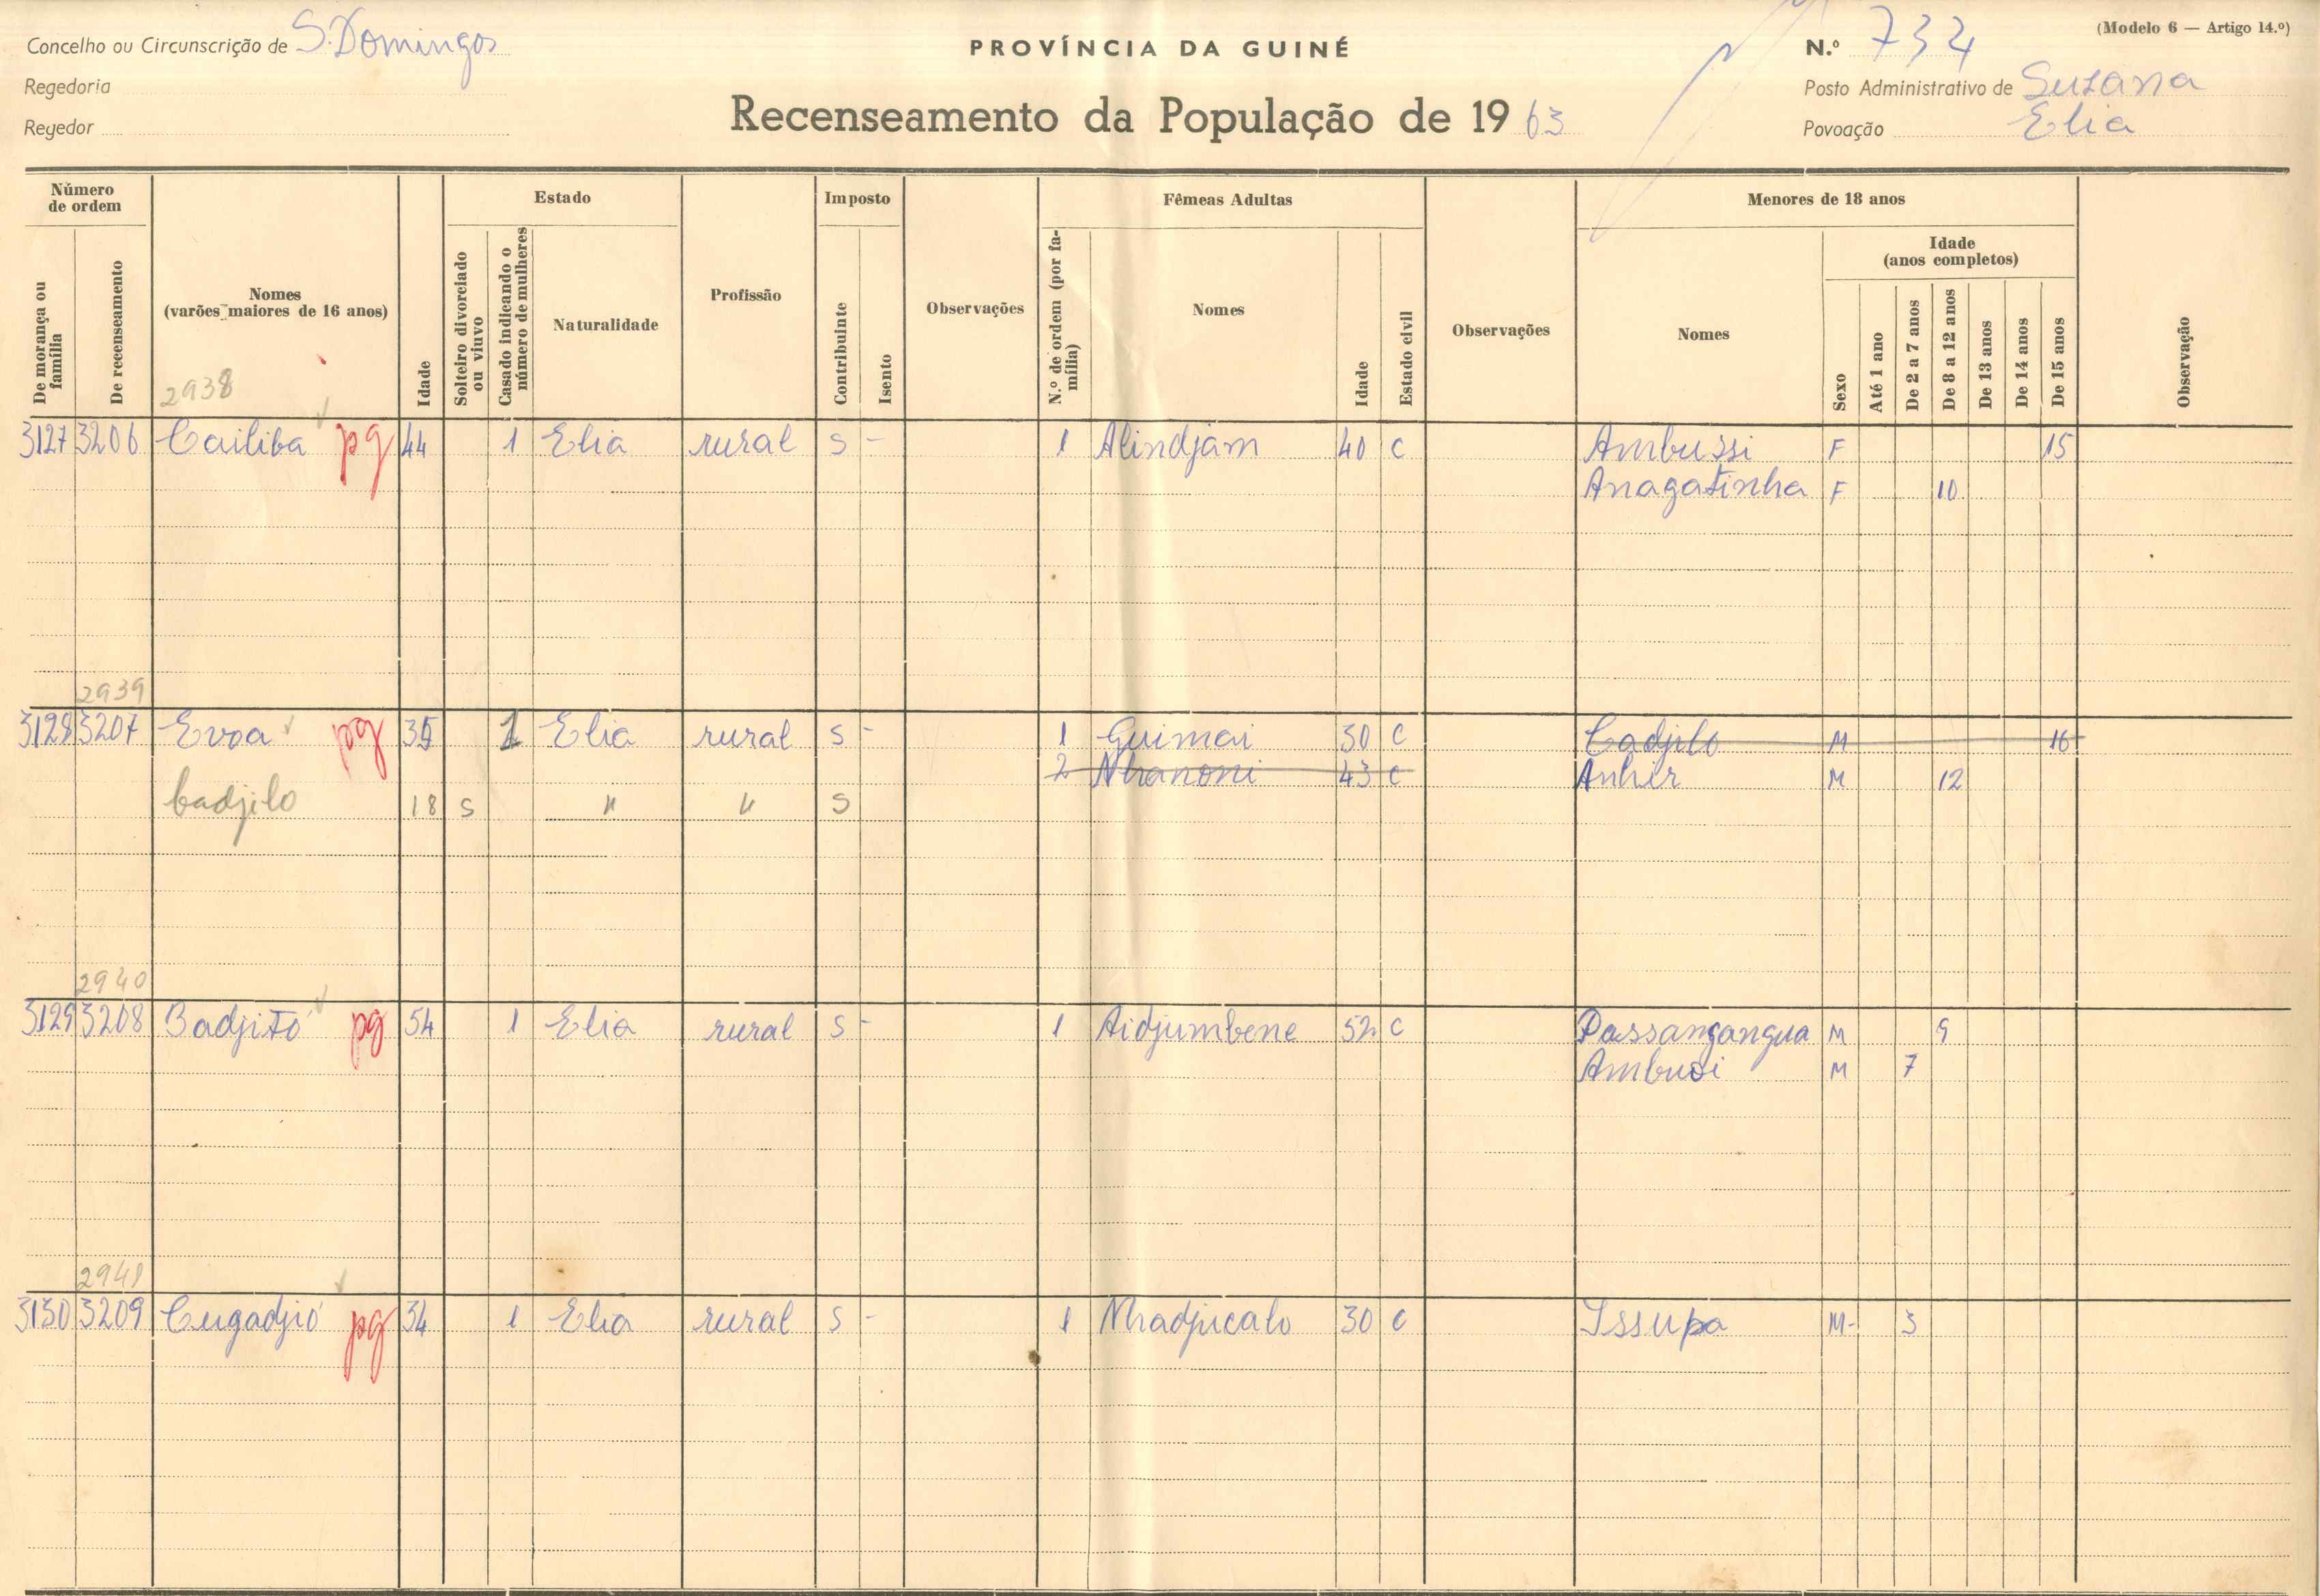 Concelho ou Circunscrição de S. Domingos
Regedoria
Regedor
PROVÍNCIA DA GUINÉ
Recenseamento da População de 1963
(Modelo 6 — Artigo 14.º)
N.º 732
Posto Administrativo de Suzana
Povoação Elia
Número de ordem
De morança ou família
De recenseamento
Nomes
(varões maiores de 16 anos)
Idade
Estado
Solteiro divorciado ou viuvo
Casado indicando o número de mulheres
Naturalidade
Profissão
Imposto
Contribuinte
Isento
Observações
Fêmeas Adultas
N.º de ordem (por família)
Nomes
Idade
Estado civil
Observações
Menores de 18 anos
Nomes
Sexo
Idade
(anos completos)
Até 1 ano
De 2 a 7 anos
De 8 a 12 anos
De 13 anos
De 14 anos
De 15 anos
Observação
2938
3127 3206 Cailiba pg 44 1 Elia rural S - 1 Alindjam 40 C Ambussi F 15
Anagatinha F 10
2939
3128 3207 Evoa pg 35 1 Elia rural S - 1 Guimai 30 C Cadjilo M 16
2 Nhanoni 43 C Anhir M 12
badjilo 18 S " " S
2940
3129 3208 Badjitó pg 54 1 Elia rural S - 1 Aidjumbene 52 C Passangangua M 9
Ambusi M 7
2941
3130 3209 Cugadjió pg 34 1 Elia rural S - 1 Nhadjucalo 30 C Issupa M - 3